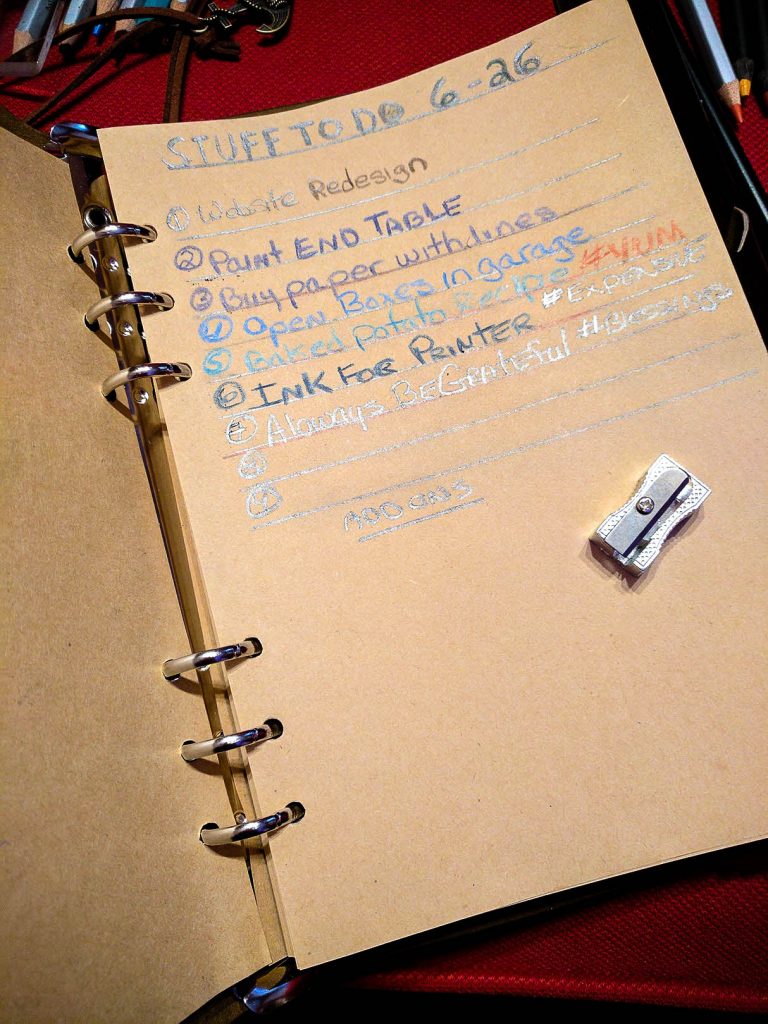 STUFF TO DO 6-26
① Website Redesign
② Paint END TABLE
③ Buy paper with lines
④ Open Boxes in garage
⑤ Baked Potato Recipe #YUM
⑥ INK FOR PRINTER #EXPENSIVE
⑦ Always BE Grateful #Blessings
⑧
⑨
ADD ONS